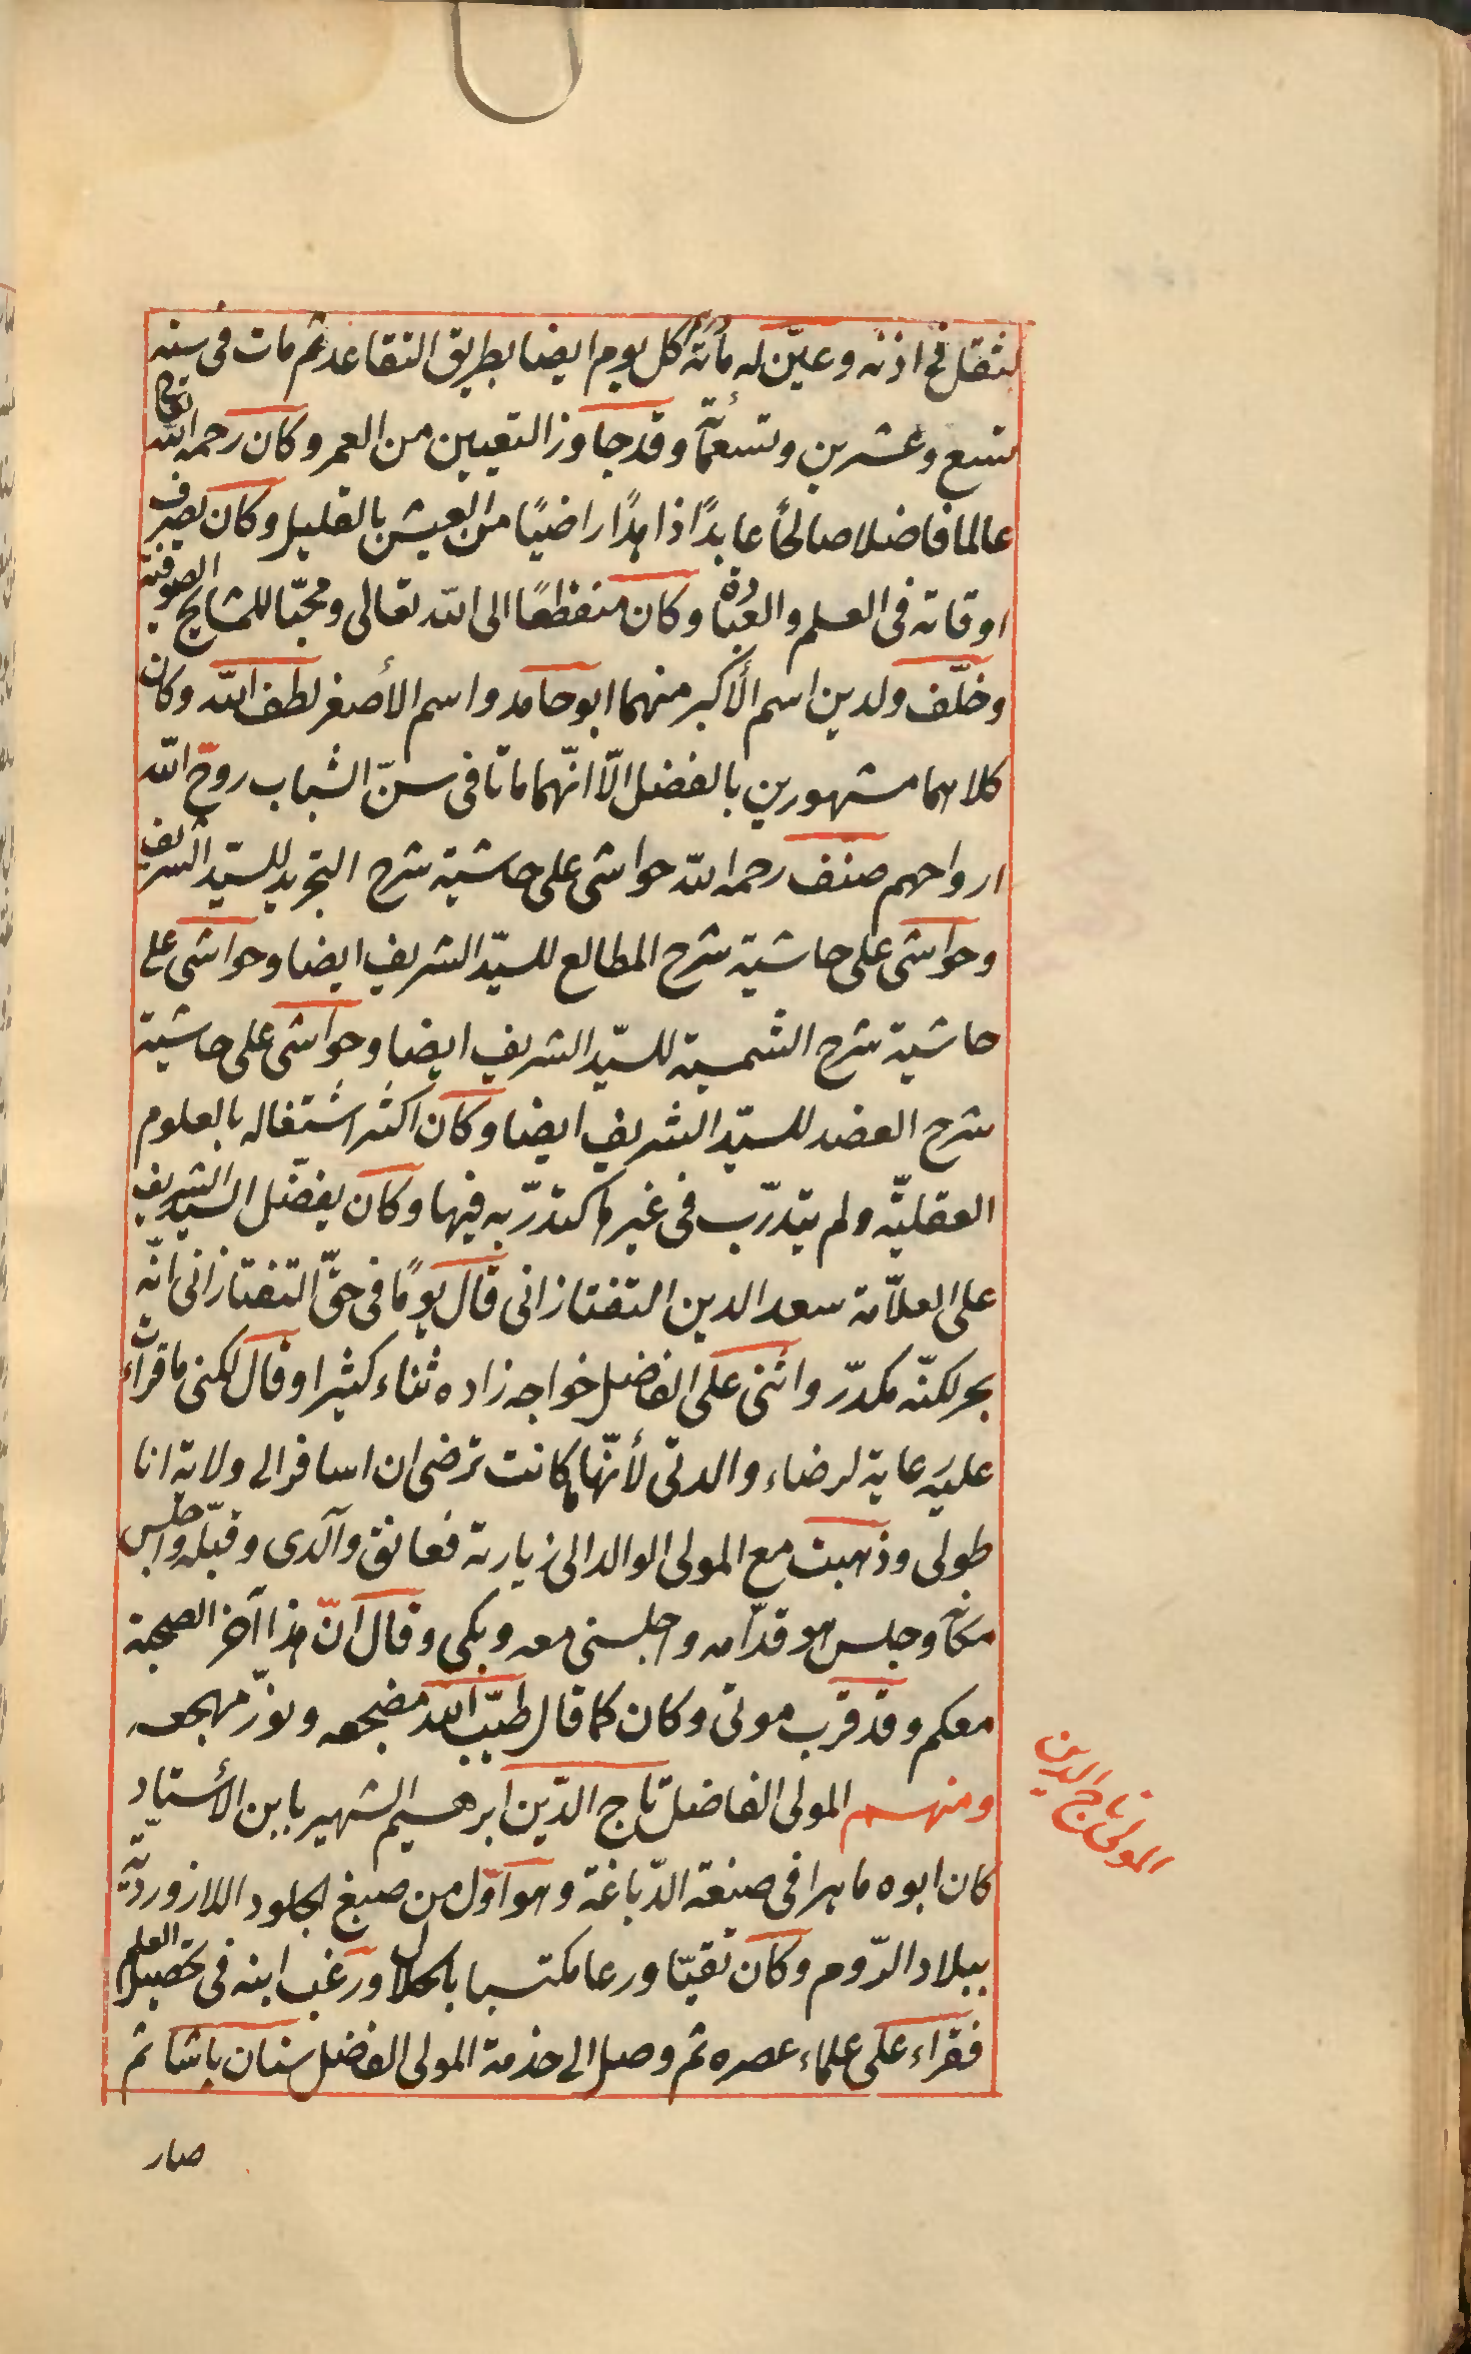 لثقل فى اذنه وعيّن له مأته كل يوم ايضا بطريق التقاعد ثم مات فى سنه
تسع وعشرين وتسعمأئة وقد جاوز التعيين من العمر وكان رحمه الله تعالى
عالما فاضلا صالحًا عابدًا ذاهدًا راضيًا من العيش بالقليل وكان يصرف
اوقاته فى العلم والعبادة وكان منقطعًا الى الله تعالى ومحبّا للمشايخ الصوفية
وخلّف ولدين اسم الأكبر منهما ابو حامد واسم الأصغر لطف الله وكان
كلاهما مشهورين بالفضل الّا انّهما ماتا فى سنّ الشباب روح الله
ارواحهم صنف رحمه الله حواشى على حاشية شرح التجريد للسيّد الشريف
وحواشى على حاشية شرح المطالع للسيّد الشريف ايضا وحواشى على
حاشية شرح الشمسية للسيّد الشريف ايضا وحواشى على حاشية
شرح العضد للسيّد الشريف ايضا وكان اكثر اشتغاله بالعلوم
العقليّه ولم يتدرّب فى غيرها كتدرّبه فيها وكان يفضّل السيّد الشريف
على العلاّمة سعد الدين التفتازانى قال يومًا فى حقّ التفتازانى انّه
بحر لكنّه مكدّر واثنى على الفاضل خواجه زاده ثناء كثيرا وقال لكنى ما قرأت
عليه رعاية لرضاء والدتى لأنّها ما كانت ترضى ان اسافر الى ولاية انا
طولى وذهبت مع المولى الوالد الى زيارته فعانق والدى وقبّله واجلس
مكانه وجلس هو قدّامه واجلسنى معه وبكى وقال انّ هذا آخر الصحبة
معكم وقد قرب موتى وكان كما قال طيّب الله مضجعه ونوّر مهجعه
ومنهم المولى الفاضل تاج الدّين ابرهيم الشهير بابن الأستاد
كان ابوه ماهرا فى صنعة الدّباغة وهو اوّل من صبغ الجلود اللازورديّة
ببلاد الرّوم وكان تقيّا ورعا مكتسبا بالحلال ورغب ابنه فى تحصيل العلم
فقراء على علماء عصره ثم وصل الى خدمة المولى الفضل سنان باشا ثم
صار
المولى تاج الدين